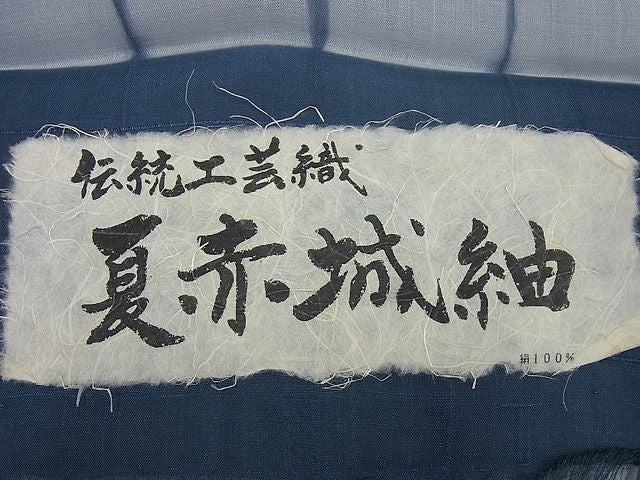 伝統工芸織
夏赤城紬
絹100%